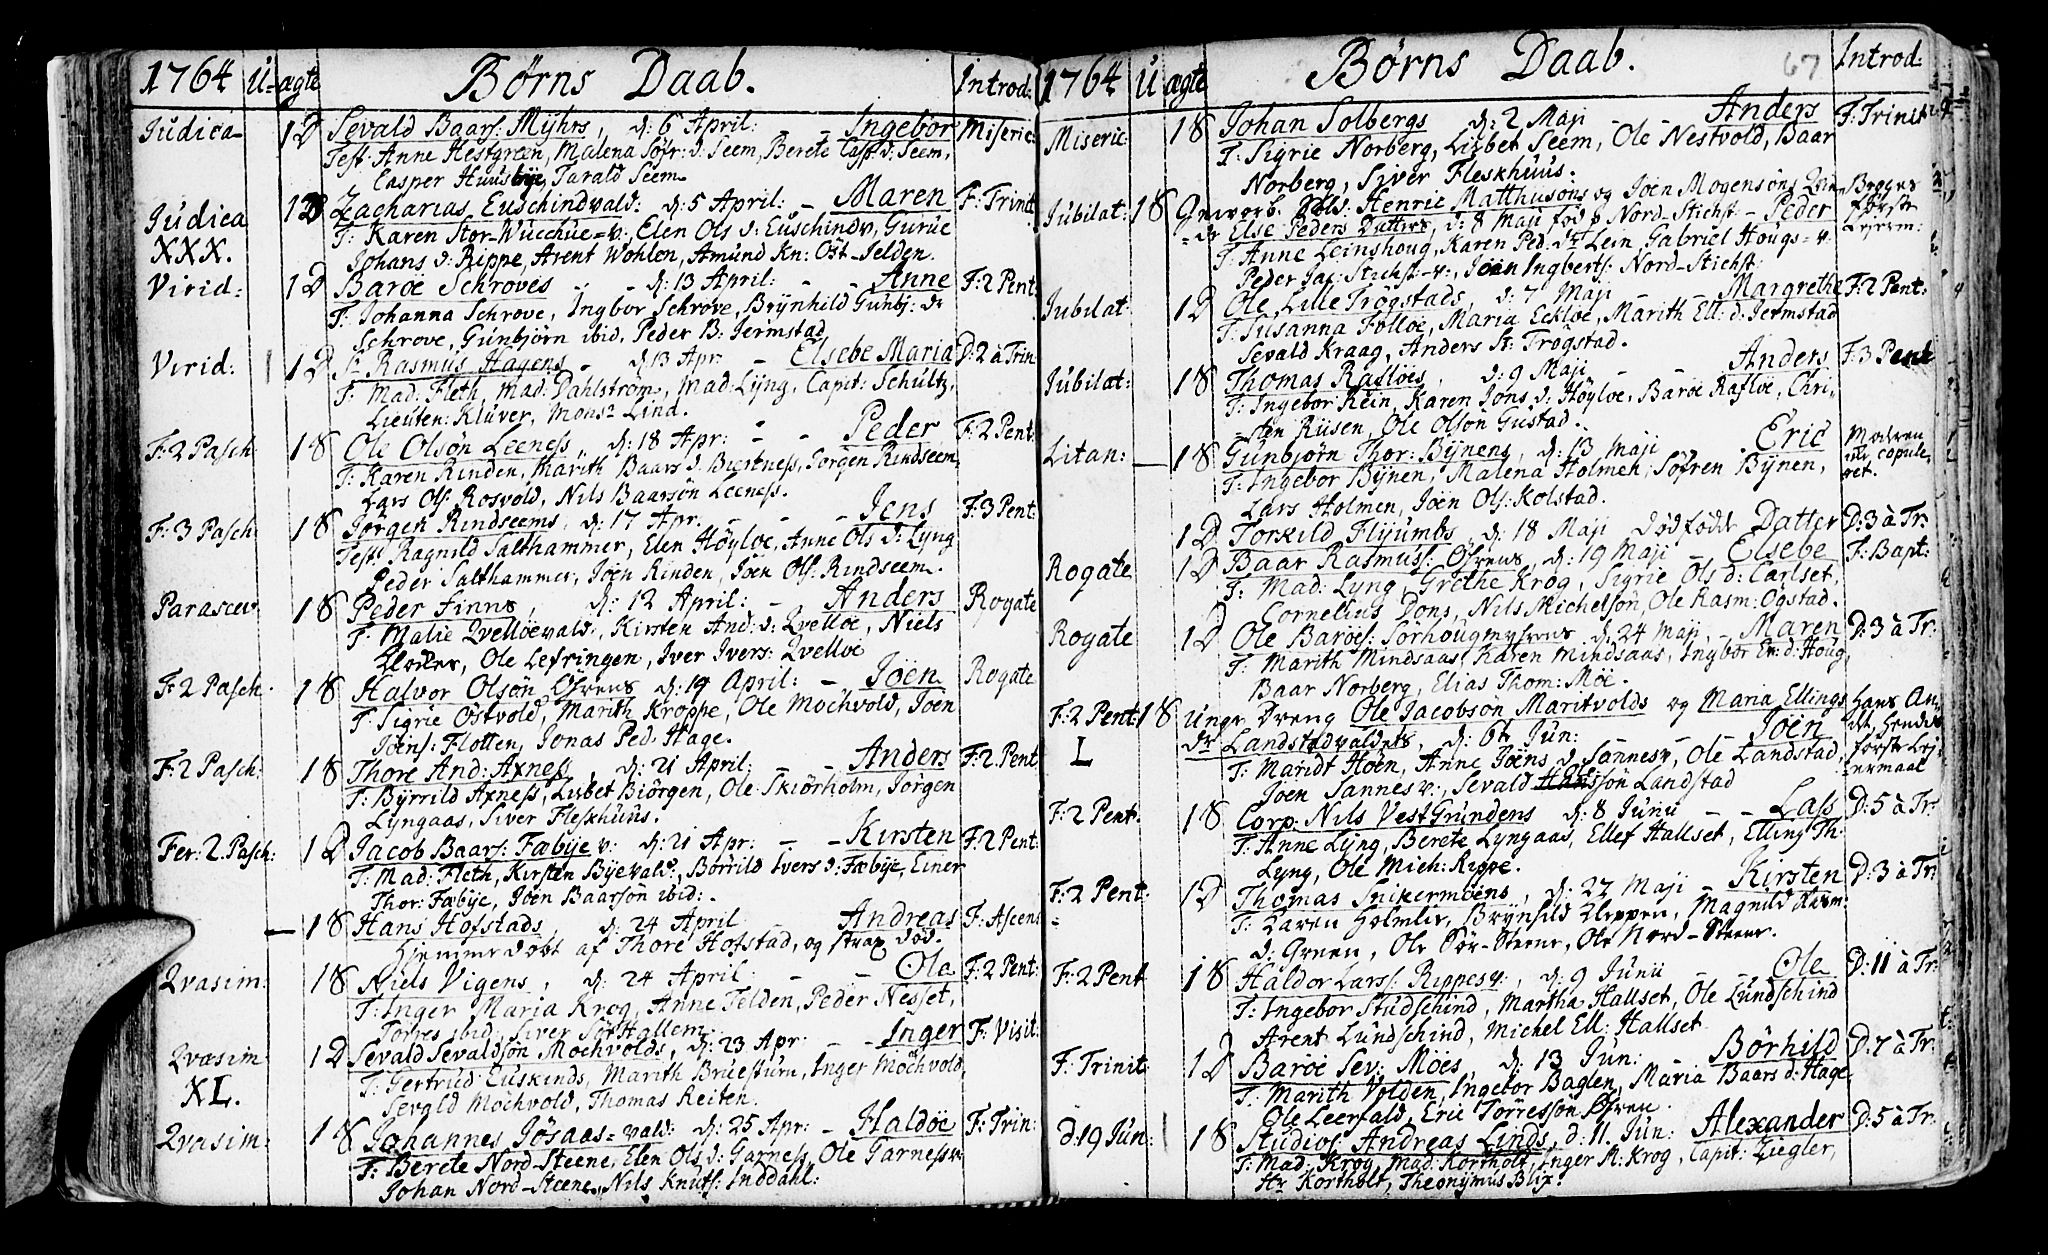 1764 U- ægte Børns Daab. Introd:
Judica 1 D Sevald Baars: Myhrs, d: 6 April: - Ingebor Miseric:
Test: Anne Hestgreen, Malena Søfr: d: Seem, Berete Casp: d: Seem,
Casper Huusbye, Tarald Seem.
Judica 1 D Zacharias Euschindvald: d: 5 April: - Maren F: Trinit
XXX. T: Karen Stor-Wucchue=v:, Elen Ols d: Euschindv, Gurue
Johans d: Rippe, Arent Wohlen, Amund Kn: Ost-Jelden.
Virid: 1 D Baroe Schroves - - d: 13 April: - - Anne F: 2 Pent:
T: Johanna Schrove, Ingbor Schrove, Brynhild Gunbj: dr
Schrove, Gunbjørn ibid, Peder B: Jermstad
Virid: 1 D Sr Rasmus Hagens - d: 13 Apr - Elsebe Maria D: 2 à Trin
T: Mad: Fleth, Mad: Dahlstrøm, Mad: Lyng, Capit: Schultz,
Lieuten: Kluver, Monsr Lind.
F: 2 Pasch: 1 8 Ole Olsøn Leeness, d: 18 Apr: - - Peder F: 2 Pent:
T: Karen Rinden, Marith Baars d: Buestness, Jørgen Rindseem,
Lars Ols: Rosvold, Nils Baarsøn Leeness.
F: 3 Pasch: 1 8 Jørgen Rindseems, d: 17 Apr. - - - Jens F: 3 Pent:
Test: Ragnild Salthammer, Elen Høyloe, Anne Ols d: Lyng
Peder Salthammer, Joen Rinden, Joen Ols: Rindseem.
Parascev: 1 8 Peder Finns, d: 12 April: - Anders Rogate
T: Malie Qvelloevald:, Kirsten And: d: Qvelloe, Niels
Klocker, Ole Lefringen, Iver Ivers: Qvelloe
F: 2 Pasch. 1 8 Halvor Olsøn Øhrens d: 19 April: - Joen Rogate
T: Sigrie Ostvold, Marith Kroppe, Ole Mochvold, Joen
Joens: Flotten, Jonas Ped: Hage.
F: 2 Pasch: 1 8 Thore And: Axness, d: 21 April: - - Anders F: 2 Pent
T: Byrrild Axness, Lisbet Biørgen, Ole Skiørholm, Jørgen
Lyngaas, Siver Fleskhuus.
Fer: 2. Pasch: 1 D Jacob Baars: Fæbye v: d: 21 Apr: - - Kirsten F: 2 Pent:
T: Mad: Fleth, Kirsten Byevald:, Børrild Ivers d: Fæbye, Einer
Thor: Fæbye, Joen Baarsøn ibid:.
- 1 8 Hans Hofstads, d: 24 April Andreas F: Ascens
Hjemmedøbt af Thore Hofstad, og strax død.
Qvasim: 1 8 Niels Vigens, d: 24 April: - - Ola F: 2 Pent:
T: Inger Maria Krog, Anne Telden, Peder Nesset,
Torres ibid, Siver Sør Hallem.
Qvasim 1 D Sevald Sevaldsøn Mochvolds, d: 23 Apr: - - Inger F: Visit:
XL. T: Gertrud Euskinds, Marith Bruesturu, Inger Mochvold,
Sevald Mochvold, Thomas Reiten.
Qvasim: 1 8 Johannes Jøsaas=vald: d: 25 Apr: - Haldoe F: Trin:
T: Berete Nord-Steene, Elen Ols d: Garness, Ole Garness v:
Johan Nord-Steene, Nils Knuts: Inddahl:
1764 U ægte Børns Daab. 67 Introd:
Miseric: 1 8 Johan Solbergs d: 2 Maji - Anders F: Trinit
T: Sigrie Norberg, Lisbet Seem, Ole Nestvold, Baar
Norberg, Siver Fleskhuus.
Jubilat: 1 8 Henric Matthusøns og Joen Mogensøns Begges
Else Peders Datter, d: 8 Maji fød p Nord-Stichst - Peder første
T: Anne Leinshoug, Karen Ped: dr Lein, Gabriel Hougs=v: Lejerm:
Peder Jac: Stichst-v:, Joen Ingberts: Nord-Stichst:
Jubilat 1 D Ole Lille Trøgstads, d: 7 Maji Margrethe F: 2 Pent:
T: Susanna Folloe, Maria Eckloe, Marith Ell: d: Jermstad
Sevald Kraag, Anders St: Trøgstad.
Jubilat: 1 8 Thomas Rafloes, d: 9 Maji - - Anders F: 3 Pent
T: Ingebor Rein, Karen Jons d: Høyloe, Baroe Rafloe, Chri-
-sten Riisen, Ole Olsøn Gustad.
Litan: - 1 8 Gunbjørn Thor: Bynens, d: 13 Maji Eric Moderen
T: Ingebor Bynen, Malena Holmen, Søfren Bynen, ey copule-
Lars Holmen, Joen Ols: Kolstad. ret.
1 D Torkild Flyumbs, d: 18 Maji Dødfødt Datter D: 3 à Tr:
Rogate 1 D Baar Rasmuss: Øhrens, d: 19 Maji - Elsebe F: Bapt:
T: Mad: Lyng, Grethe Krog, Sigrie Ols d: Carlset,
Cornelius Dons, Nils Michelsøn, Ole Rasm: Ogstad.
Rogate 1 D Ole Baroes: Sørhougmyhrens d: 24 Maji, - Maren D: 3 à Tr:
T: Marith Mindsaas, Karen Mindsaas, Ingbor Er: d: Houg,
Baar Norberg, Elias Thom: Moe.
F: 2 Pent: 1 8 Ungr Dreng Ole Jacobsøn Maritvolds og Maria Ellings Hans An-
dr Landstadvaldets, d: 6t Jun: Joen det, Hendes
L T: Maridt Hoen, Anne Joens d Sannes v, Ole Landstad, første Lej-
Joen Sannes v:, Sevald Landstad -ermaal
F: 2 Pent. 1 8 Corp: Nils VestGrundens d: 8 Junii - - Lass D: 5 à Tr:
T: Anne Lyng, Berete Lyngaas, Ellef Hallset, Elling Th:
Lyng, Ole Mich: Rippe.
F: 2 Pent: 1 D Thomas Snikermoens, d: 27 Maji - Kirsten D: 3 à Tr:
T: Karen Holmlie, Brynhild Kleppen, Magnild Rasm:
d: Green, Ole Sør-Steene, Ole Nord-Steene.
F: 2 Pent 1 8 Haldor Larss: Rippes v:, d: 9 Junii - Ole D: 11 à Tr:
T: Ingebor Studschind, Martha Hallset, Ole Lundschind
Arent Lundschind, Michel Ell: Hallset
F: Trinit: 1 D Baroe Sev: Moes, d: 13 Jun: Børhild D: 7 à Tr:
T: Marith Volden, Ingebor Baglen, Maria Baars d: Hage
Ole Leerfald, Eric Torressøn Øhren.
d: 19 Jun: 1 8 Studios: Andreas Linds, d: 11. Jun: Alexander D: 5 à Tr:
T: Mad: Krog, Mad: Kortholt, Inger M: Krog, Capit: Ziegler,
Hr Kortholt, Theonymus Blix.